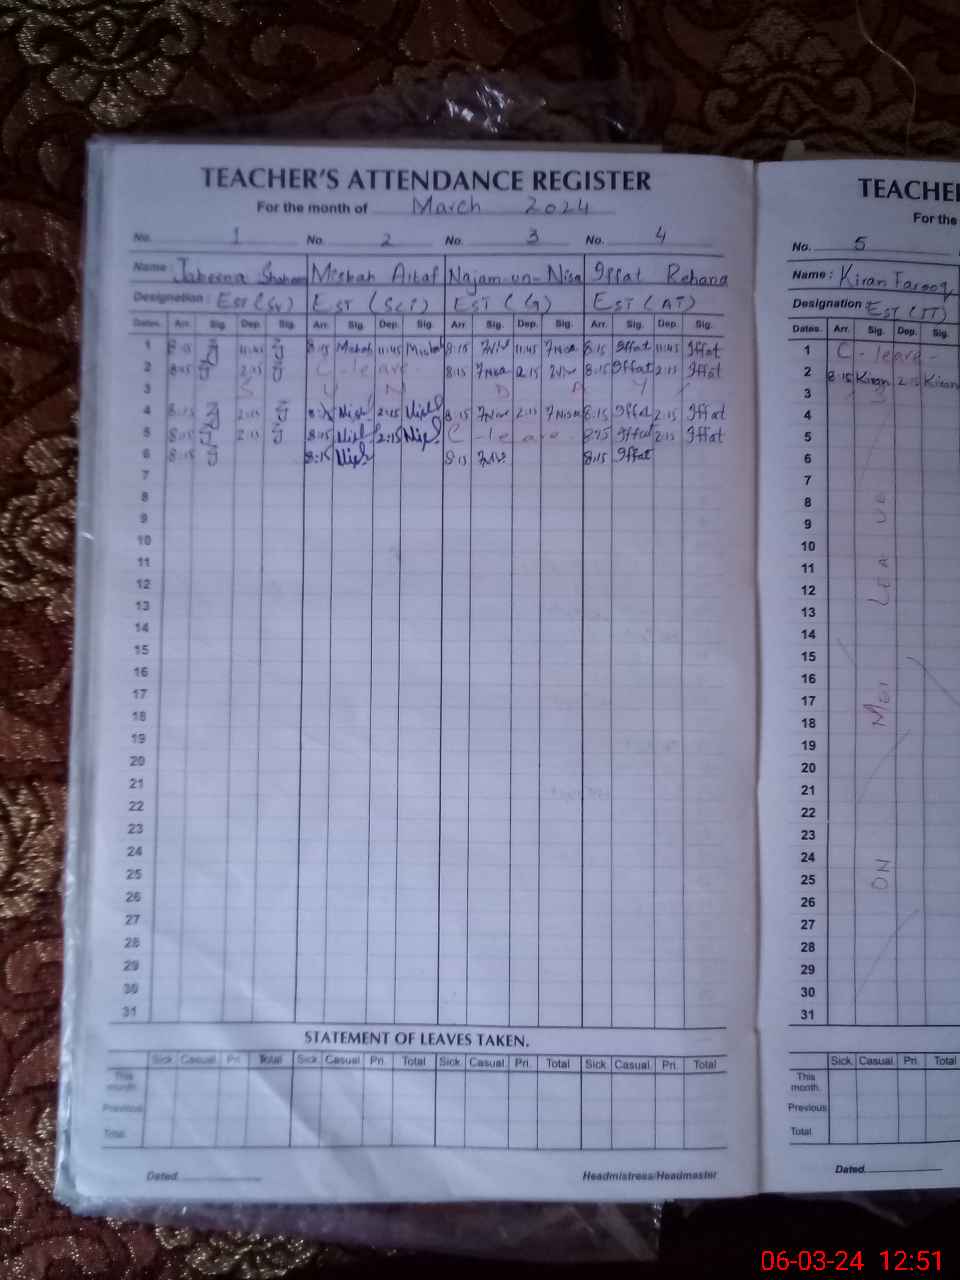 TEACHER'S ATTENDANCE REGISTER
For the month of March 2024
No. 1 No. 2 No. 3 No. 4
Name: Shaheen Misbah Altaf Najam-un-Nisa Iffat Rehana
Designation: EST (SV) EST (SCI) EST (G) EST (AT)
Dates. Arr. Sig. Dep. Sig. Arr. Sig. Dep. Sig. Arr. Sig. Dep. Sig. Arr. Sig. Dep. Sig.
1 8:15 11:45 8:15 Misbah 11:45 Misbah 8:15 7Nisa 11:45 7Nisa 8:15 Iffat 11:45 Iffat
2 8:15 2:15 C - leave - 8:15 7Nisa 2:15 8:15 Iffat 2:15 Iffat
3 S U N D A Y
4 8:15 2:15 2:15 8:15 2:15 7Nisa 8:15 Iffat 2:15 Iffat
5 8:15 2:15 8:15 2:15 C - leave - 8:15 Iffat 2:15 Iffat
6 8:15 8:15 8:15 8:15 Iffat
7
8
9
10
11
12
13
14
15
16
17
18
19
20
21
22
23
24
25
26
27
28
29
30
31
STATEMENT OF LEAVES TAKEN.
Sick. Casual. Pri. Total Sick. Casual. Pri. Total Sick. Casual. Pri. Total Sick. Casual. Pri. Total
This month.
Previous
Total
Dated Headmistress/Headmaster
TEACHE
For the
No. 5
Name: Kiran Farooq
Designation EST (IT)
Dates. Arr. Sig. Dep. Sig.
1 C - leave -
2 8:15 Kiran 2:15 Kiran
3
4
5
6
7
8
9
10
11
12
13
14
15
16
17
18
19
20
21
22
23
24
25
26
27
28
29
30
31
ON LEAVE
Sick. Casual. Pri. Total
This month.
Previous
Total
Dated
06-03-24 12:51